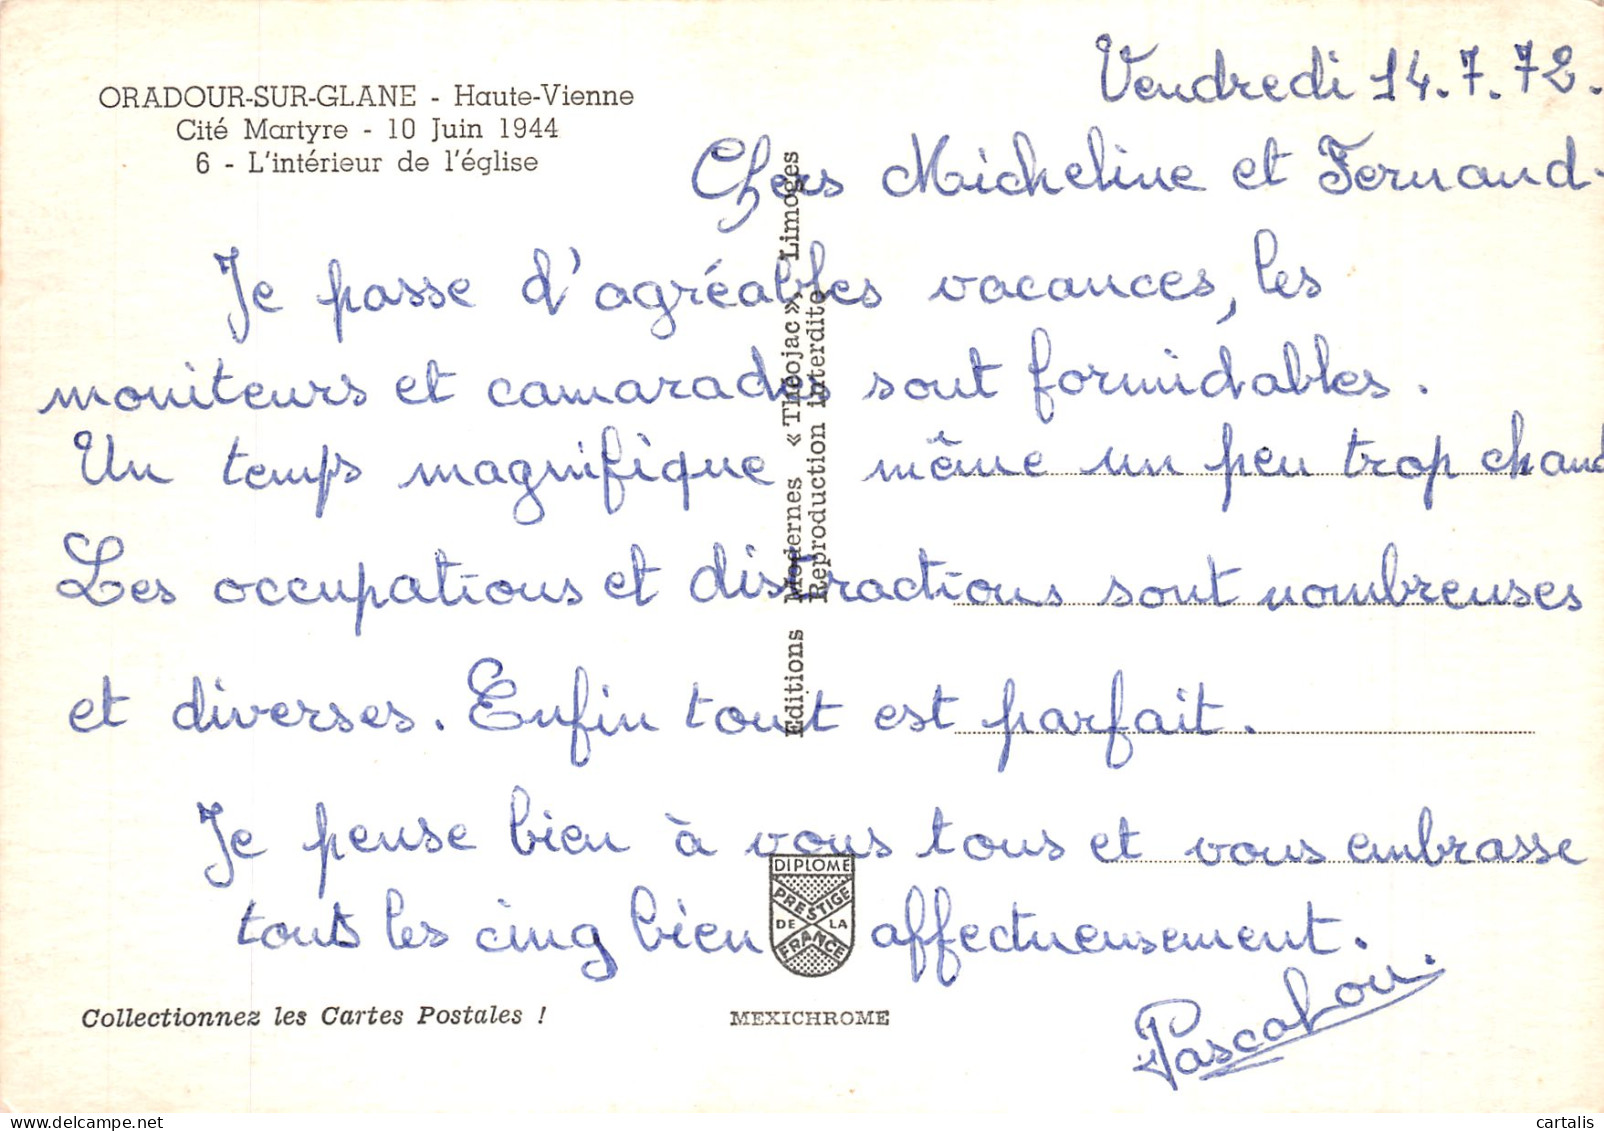 ORADOUR-SUR-GLANE - Haute-Vienne
Cité Martyre - 10 Juin 1944
6 - L'intérieur de l'église
Vendredi 14.7.72.
Chers Micheline et Fernand.
Je passe d'agréables vacances, les
moniteurs et camarades sont formidables.
Un temps magnifique même un peu trop chaud
Les occupations et distractions sont nombreuses
et diverses. Enfin tout est parfait.
Je pense bien à vous tous et vous embrasse
tous les cinq bien affectueusement.
Pascalou.
Editions Modernes « Théojac » Limoges
Reproduction interdite
DIPLOME
PRESTIGE
DE LA
FRANCE
Collectionnez les Cartes Postales !
MEXICHROME
cartalis